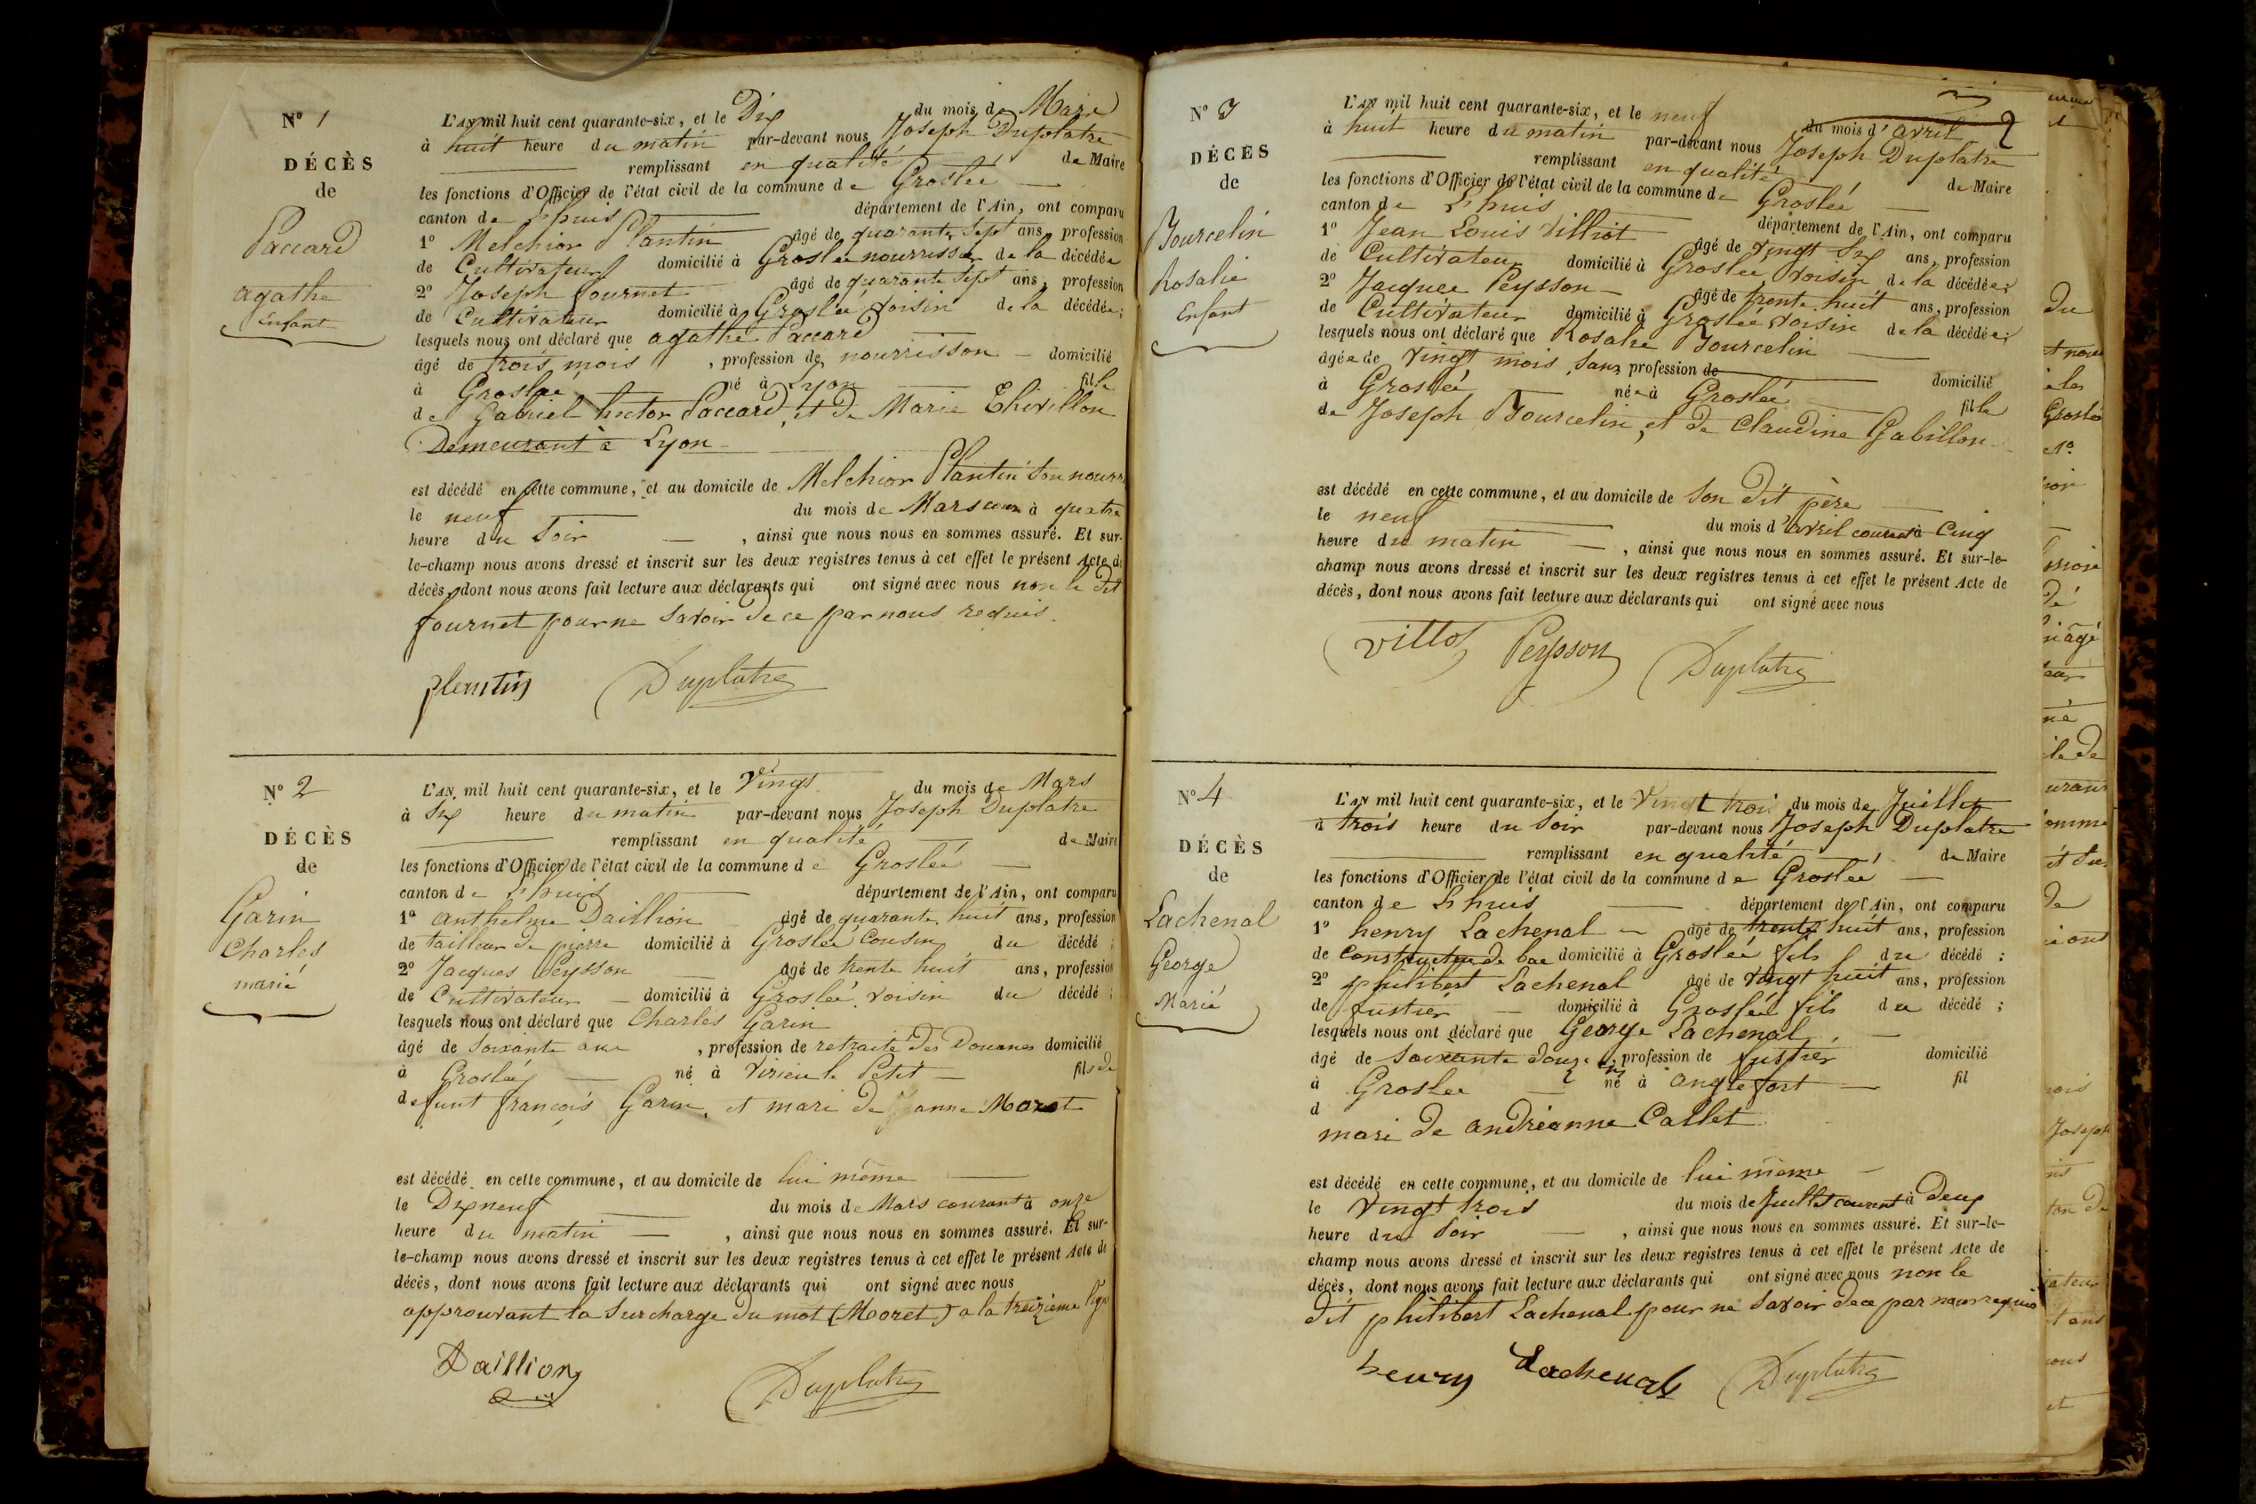 N° 1
DÉCÈS
de
Paccard
agathe
Enfant
L'AN mil huit cent quarante-six, et le Dix du mois de Mars
à huit heure du matin par-devant nous Joseph Duplatre
remplissant en qualité de Maire
les fonctions d'Officier de l'état civil de la commune de Groslée
canton de L'huis département de l'Ain, ont comparu
1° Melchior Plantin âgé de quarante sept ans, profession
de Cultivateur domicilié à Groslée nourrissier de la décédée
2° Joseph fournet âgé de quarante sept ans, profession
de Cultivateur domicilié à Groslée voisin de la décédée;
lesquels nous ont déclaré que agathe Paccard
âgé de trois mois, profession de nourrisson domicilié
à Groslée né à Lyon fille
de Gabriel hector Paccard, et de Marie Thivillon
Demeurant à Lyon
est décédé en cette commune, et au domicile de Melchior Plantin Son nourri
le neuf du mois de Mars à quatre
heure du Soir, ainsi que nous nous en sommes assuré. Et sur-
le-champ nous avons dressé et inscrit sur les deux registres tenus à cet effet le présent Acte de
décès, dont nous avons fait lecture aux déclarants qui ont signé avec nous non le dit
fournet pour ne Savoir de ce par nous requis.
plantin Duplatre
N° 2
DÉCÈS
de
Garin
Charles
marié
L'AN mil huit cent quarante-six, et le Vingt du mois de Mars
à Six heure du matin par-devant nous Joseph Duplatre
remplissant en qualité de Maire
les fonctions d'Officier de l'état civil de la commune de Groslée
canton de L'huis département de l'Ain, ont comparu
1° anthelme Daillion âgé de quarante huit ans, profession
de tailleur de pierre domicilié à Groslée Cousin du décédé;
2° Jacques Peysson âgé de trente huit ans, profession
de Cultivateur domicilié à Groslée voisin du décédé;
lesquels nous ont déclaré que Charles Garin
âgé de Soixante ans, profession de retraité des Douanes domicilié
à Groslée né à Virieu le Petit fils de
defunt françois Garin, et mari de Jeanne Moret
est décédé en cette commune, et au domicile de lui même
le Dix neuf du mois de Mars courant à onze
heure du matin, ainsi que nous nous en sommes assuré. Et sur-
le-champ nous avons dressé et inscrit sur les deux registres tenus à cet effet le présent Acte de
décès, dont nous avons fait lecture aux déclarants qui ont signé avec nous
approuvant la Surcharge du mot (Moret) a la treizieme ligne
Daillion Duplatre
2
N° 3
DÉCÈS
de
Bourcelin
Rosalie
Enfant
L'AN mil huit cent quarante-six, et le neuf du mois d'avril
à huit heure du matin par-devant nous Joseph Duplatre
remplissant en qualité de Maire
les fonctions d'Officier de l'état civil de la commune de Groslée
canton de L'huis département de l'Ain, ont comparu
1° Jean Louis Villiot âgé de vingt Six ans, profession
de Cultivateur domicilié à Groslée voisin de la décédée;
2° Jacques Peysson âgé de trente huit ans, profession
de Cultivateur domicilié à Groslée voisin de la décédée;
lesquels nous ont déclaré que Rosalie Bourcelin
âgée de vingt mois, Sans profession de domicilié
à Groslée née à Groslée fille
de Joseph Bourcelin, et de Claudine Gabillon
est décédé en cette commune, et au domicile de Son dit père
le neuf du mois d'avril courant à Cinq
heure du matin, ainsi que nous nous en sommes assuré. Et sur-le-
champ nous avons dressé et inscrit sur les deux registres tenus à cet effet le présent Acte de
décès, dont nous avons fait lecture aux déclarants qui ont signé avec nous
Peysson Duplatre
N° 4
DÉCÈS
de
Lachenal
George
Marié
L'AN mil huit cent quarante-six, et le Vingt trois du mois de Juillet
à trois heure du Soir par-devant nous Joseph Duplatre
remplissant en qualité de Maire
les fonctions d'Officier de l'état civil de la commune de Groslée
canton de L'huis département de l'Ain, ont comparu
1° henry Lachenal âgé de trente huit ans, profession
de Constructeur de bac domicilié à Groslée fils du décédé;
2° philibert Lachenal âgé de vingt huit ans, profession
de fustier domicilié à Groslée fils du décédé;
lesquels nous ont déclaré que George Lachenal
âgé de Soixante douze, profession de fustier domicilié
à Groslée né à anglefort fil
d
mari de andréanne Callet
est décédé en cette commune, et au domicile de lui même
le Vingt trois du mois de Juillet courant à Deux
heure du Soir, ainsi que nous nous en sommes assuré. Et sur-le-
champ nous avons dressé et inscrit sur les deux registres tenus à cet effet le présent Acte de
décès, dont nous avons fait lecture aux déclarants qui ont signé avec nous non le
dit philibert Lachenal pour ne Savoir de ce par nous requis
henry Lachenal Duplatre